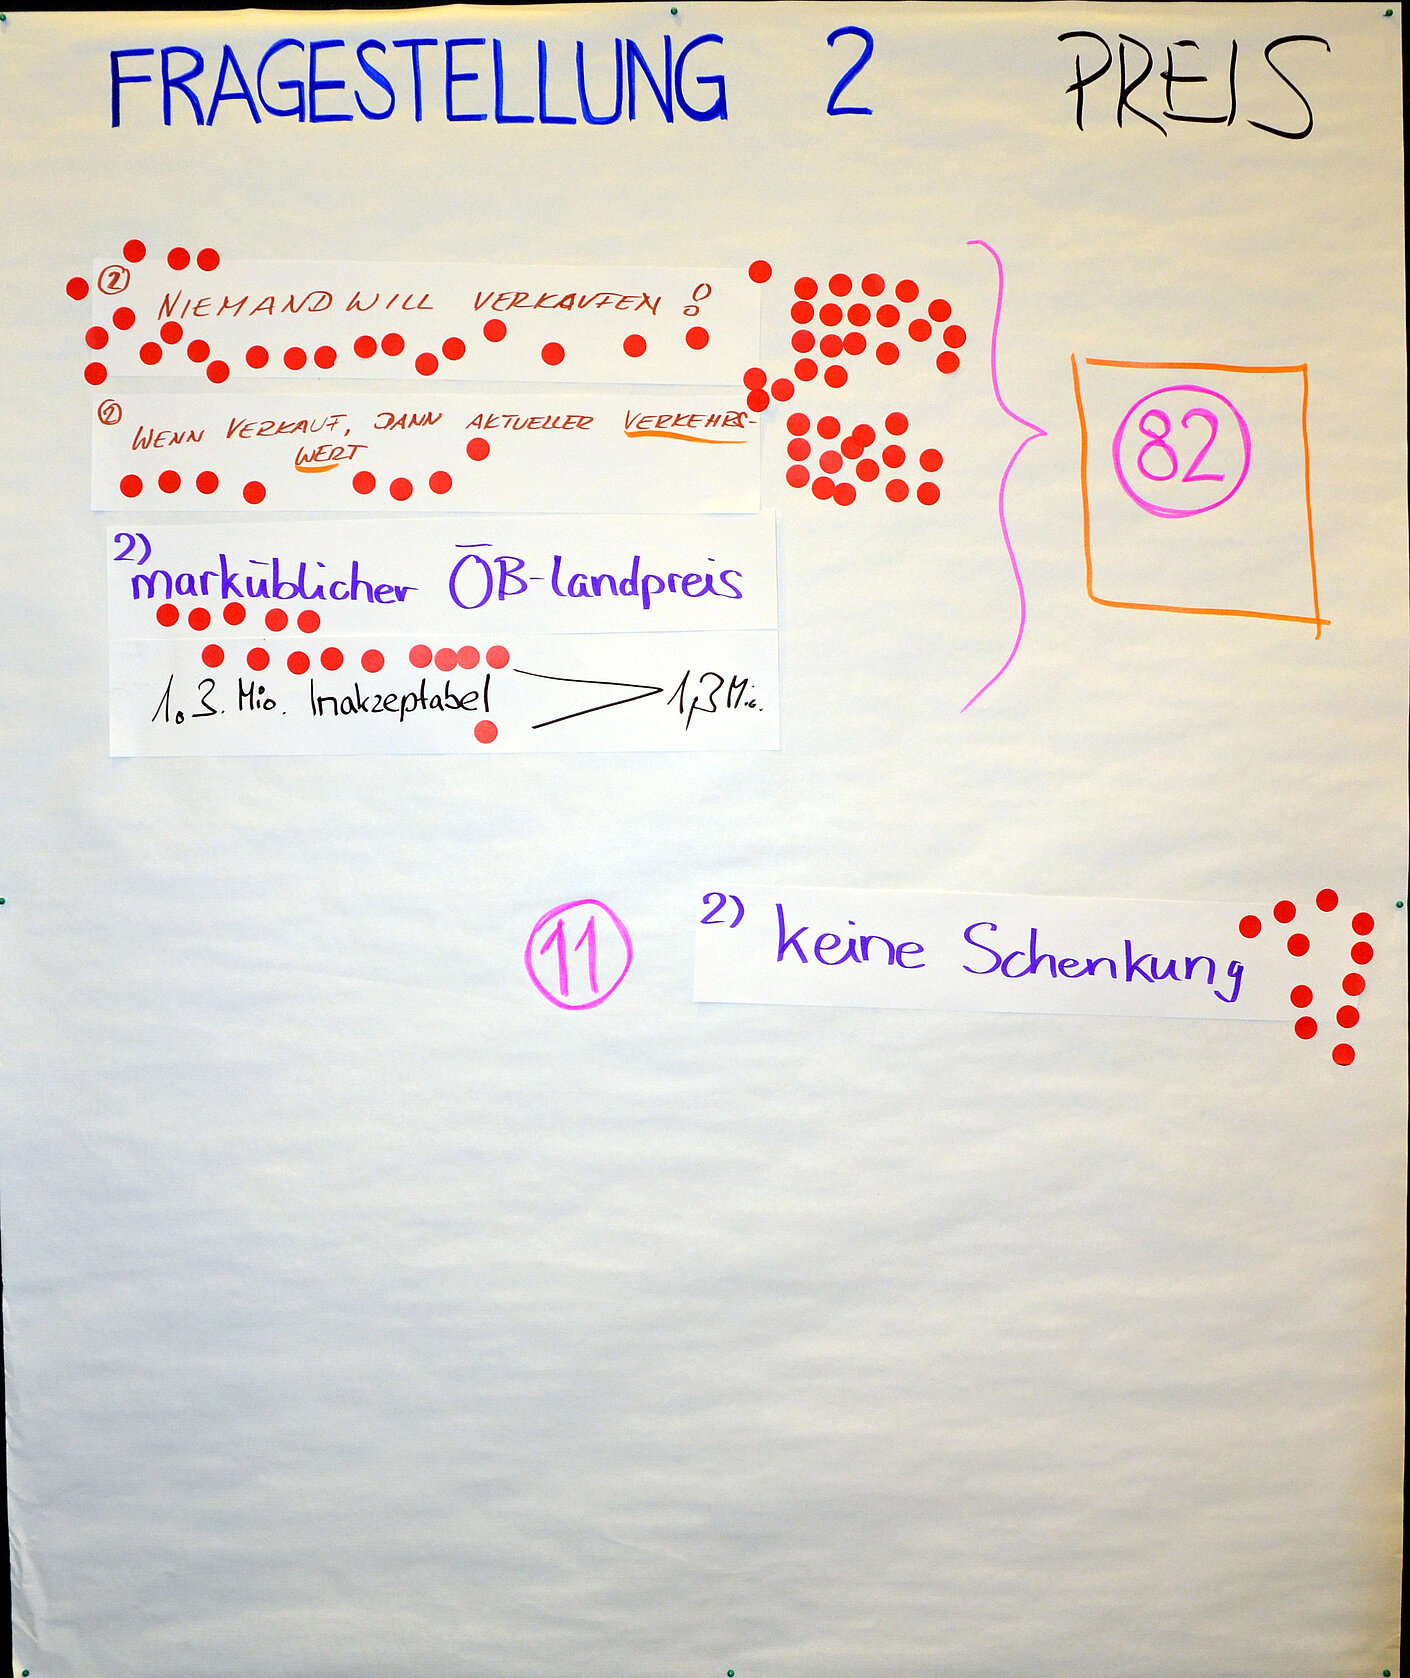 FRAGESTELLUNG 2 PREIS
② NIEMAND WILL VERKAUFEN !
② WENN VERKAUF, DANN AKTUELLER VERKEHRS-
WERT
82
2)
markǖblicher ŌB-landpreis
1.3. Mio. Inakzeptabel 1,3 Mio.
11
2) keine Schenkung